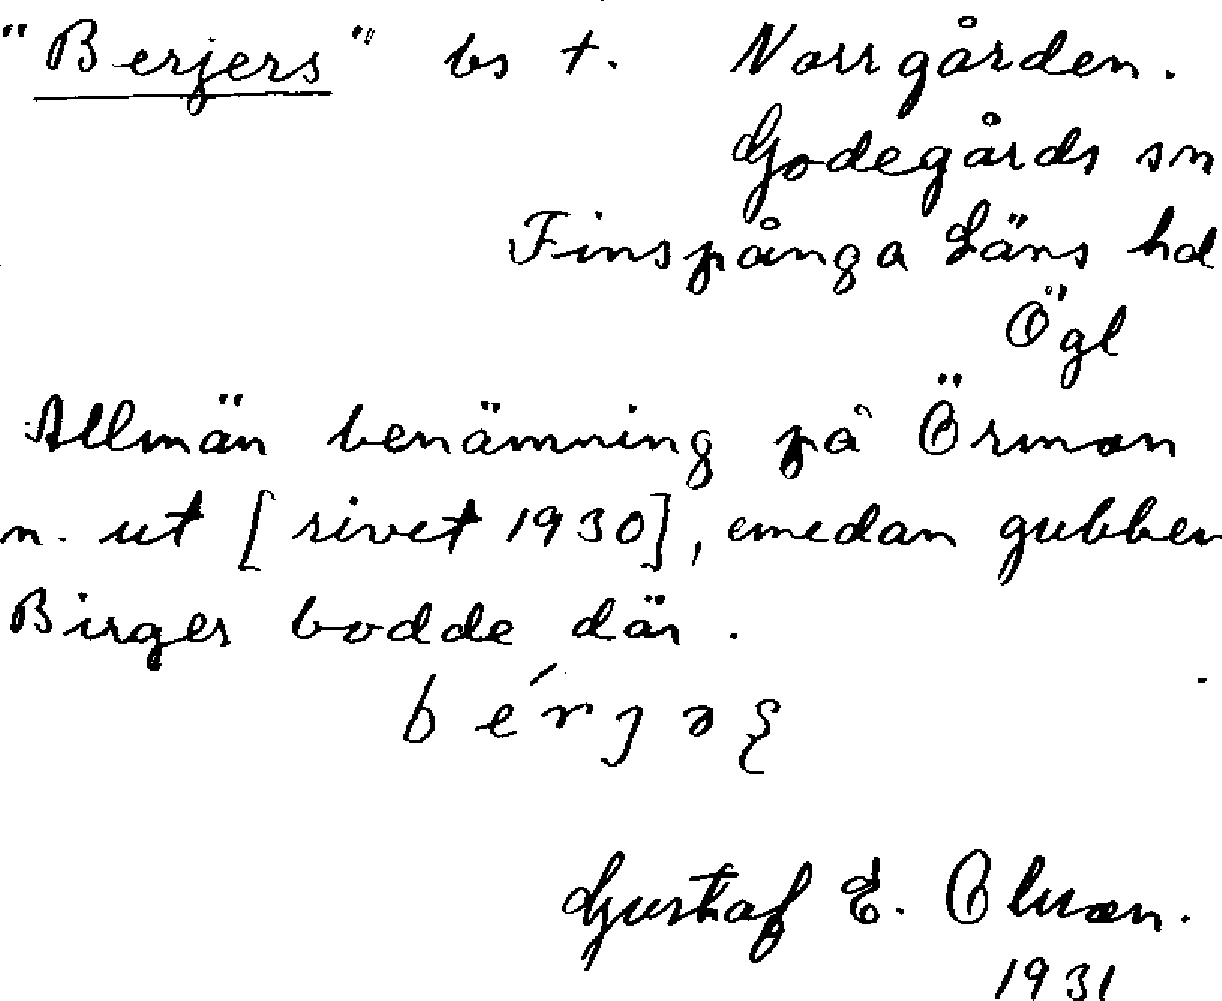 "Berjers" bs t. Norrgården.
Godegårds sn
Finspånga Läns hd
Ögl
Allmän benämning på Örmon
n. ut [rivet 1930], emedan gubben
Birger bodde där.
bérjəʂ
Gustaf E.
1931